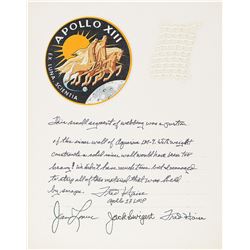 APOLLO XIII
EX LUNA, SCIENTIA
This small segment of webbing was a portion
of the inner wall of Aquarius LM-7. Lightweight
construction a solid inner wall would have been too
heavy! We didn't have much time but I managed
to strip all of this material that was held
by snaps. Fred Haise
Apollo 13 LMP
James Lovell Jack Swigert Fred Haise